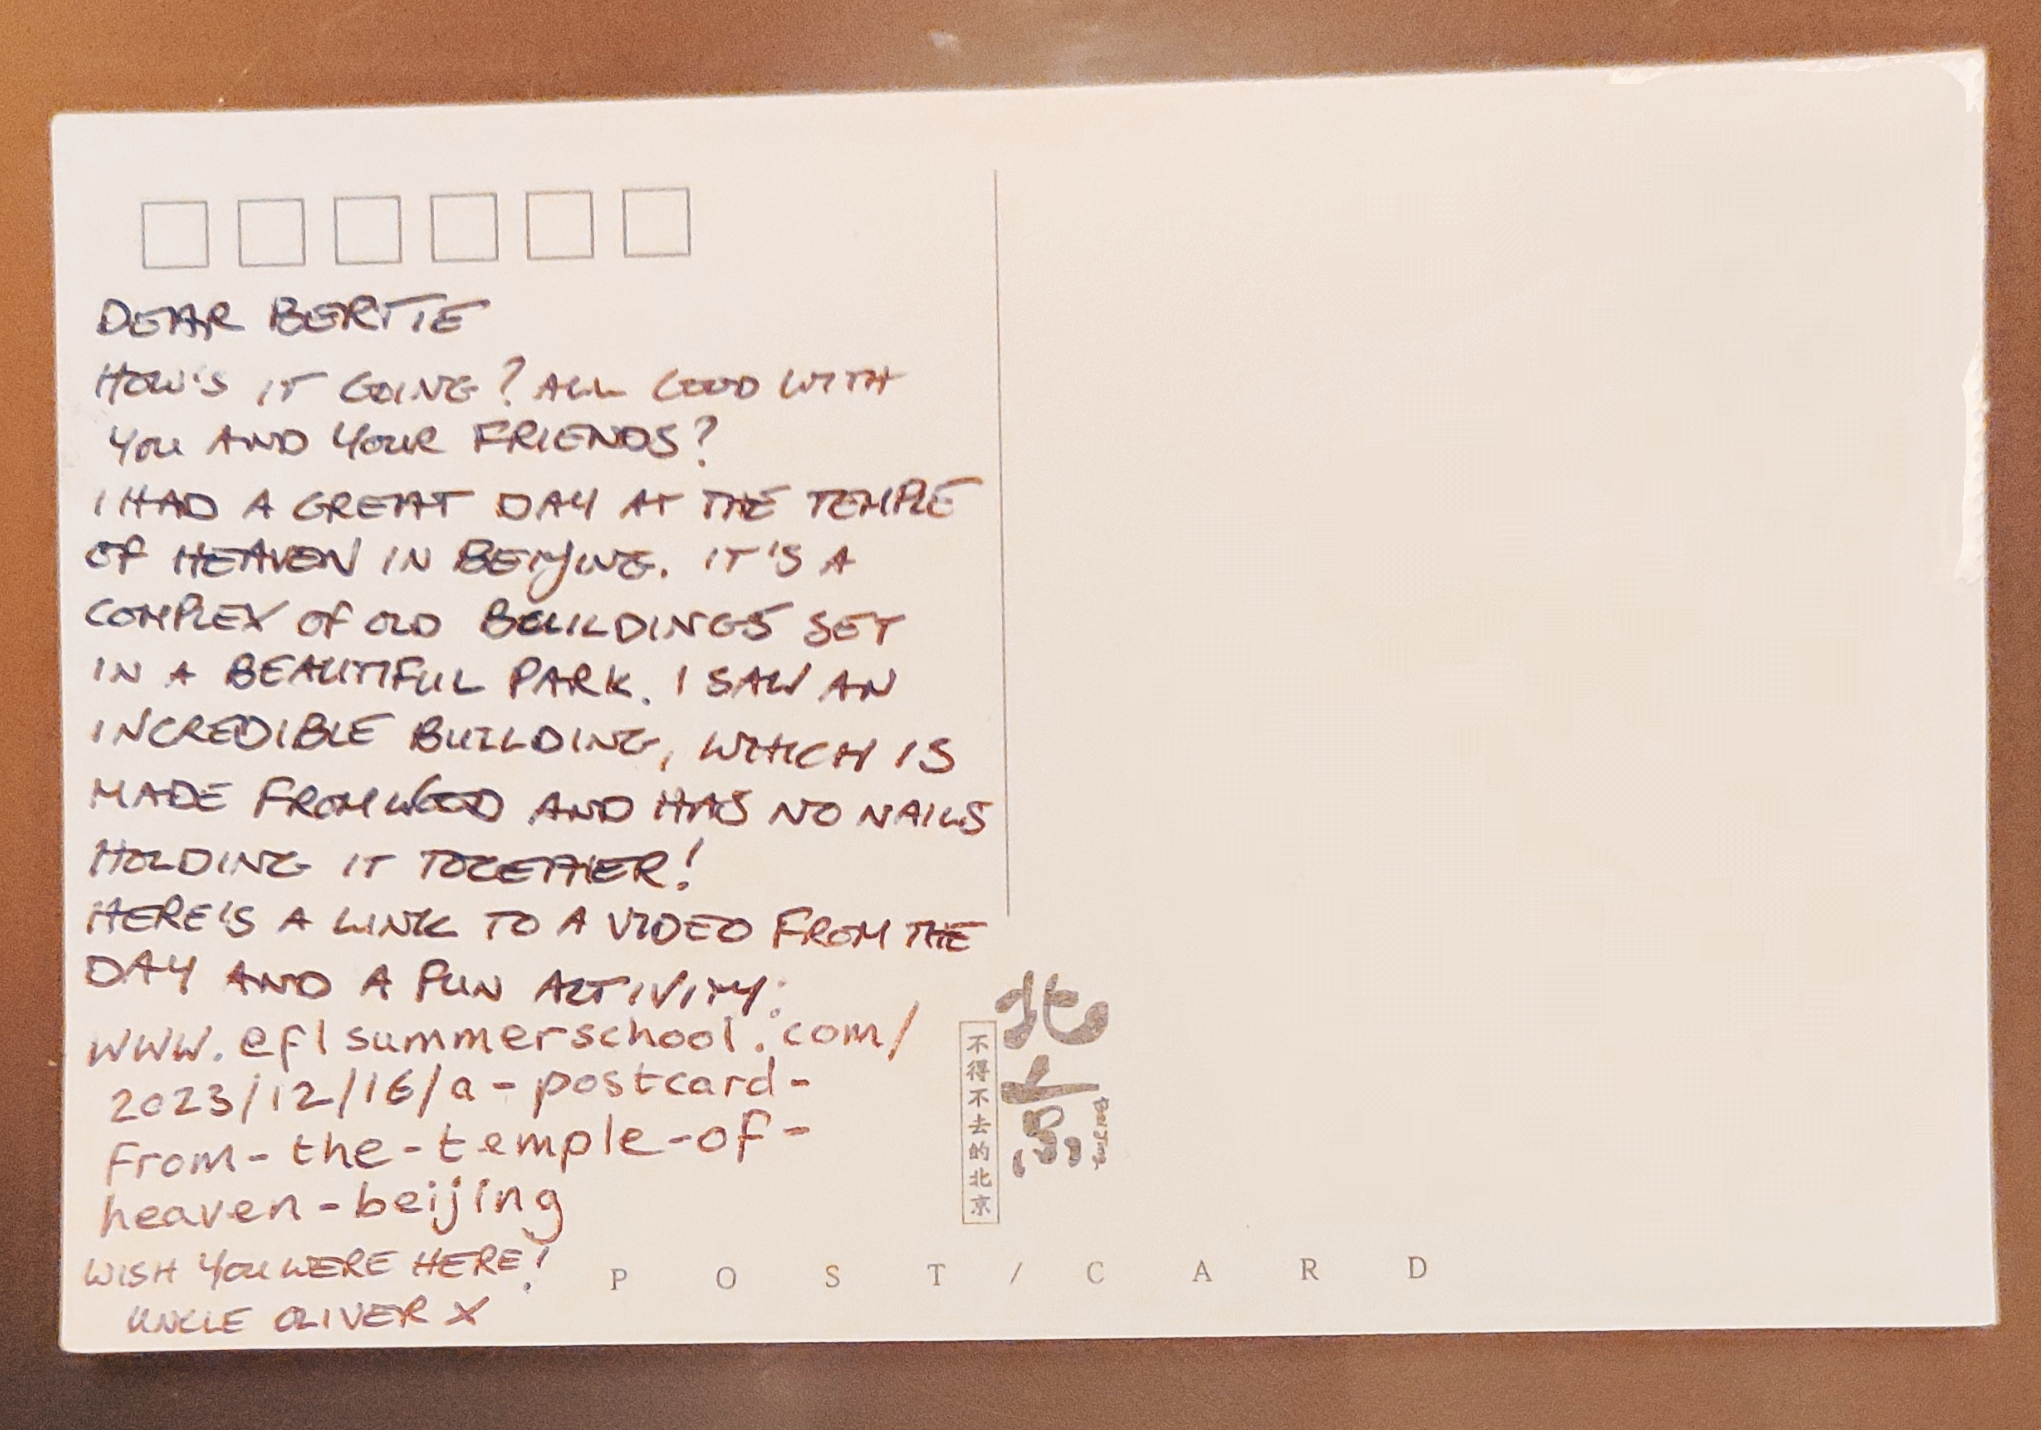 DEAR BERTIE
HOW'S IT GOING? ALL GOOD WITH
YOU AND YOUR FRIENDS?
I HAD A GREAT DAY AT THE TEMPLE
OF HEAVEN IN BEIJING. IT'S A
COMPLEX OF OLD BUILDINGS SET
IN A BEAUTIFUL PARK. I SAW AN
INCREDIBLE BUILDING, WHICH IS
MADE FROM WOOD AND HAS NO NAILS
HOLDING IT TOGETHER!
HERE'S A LINK TO A VIDEO FROM THE
DAY AND A FUN ACTIVITY:
www.eflsummerschool.com/
2023/12/16/a-postcard-
from-the-temple-of-
heaven-beijing
WISH YOU WERE HERE!
UNCLE OLIVER X
北京
BeiJing
不得不去的北京
POST/CARD